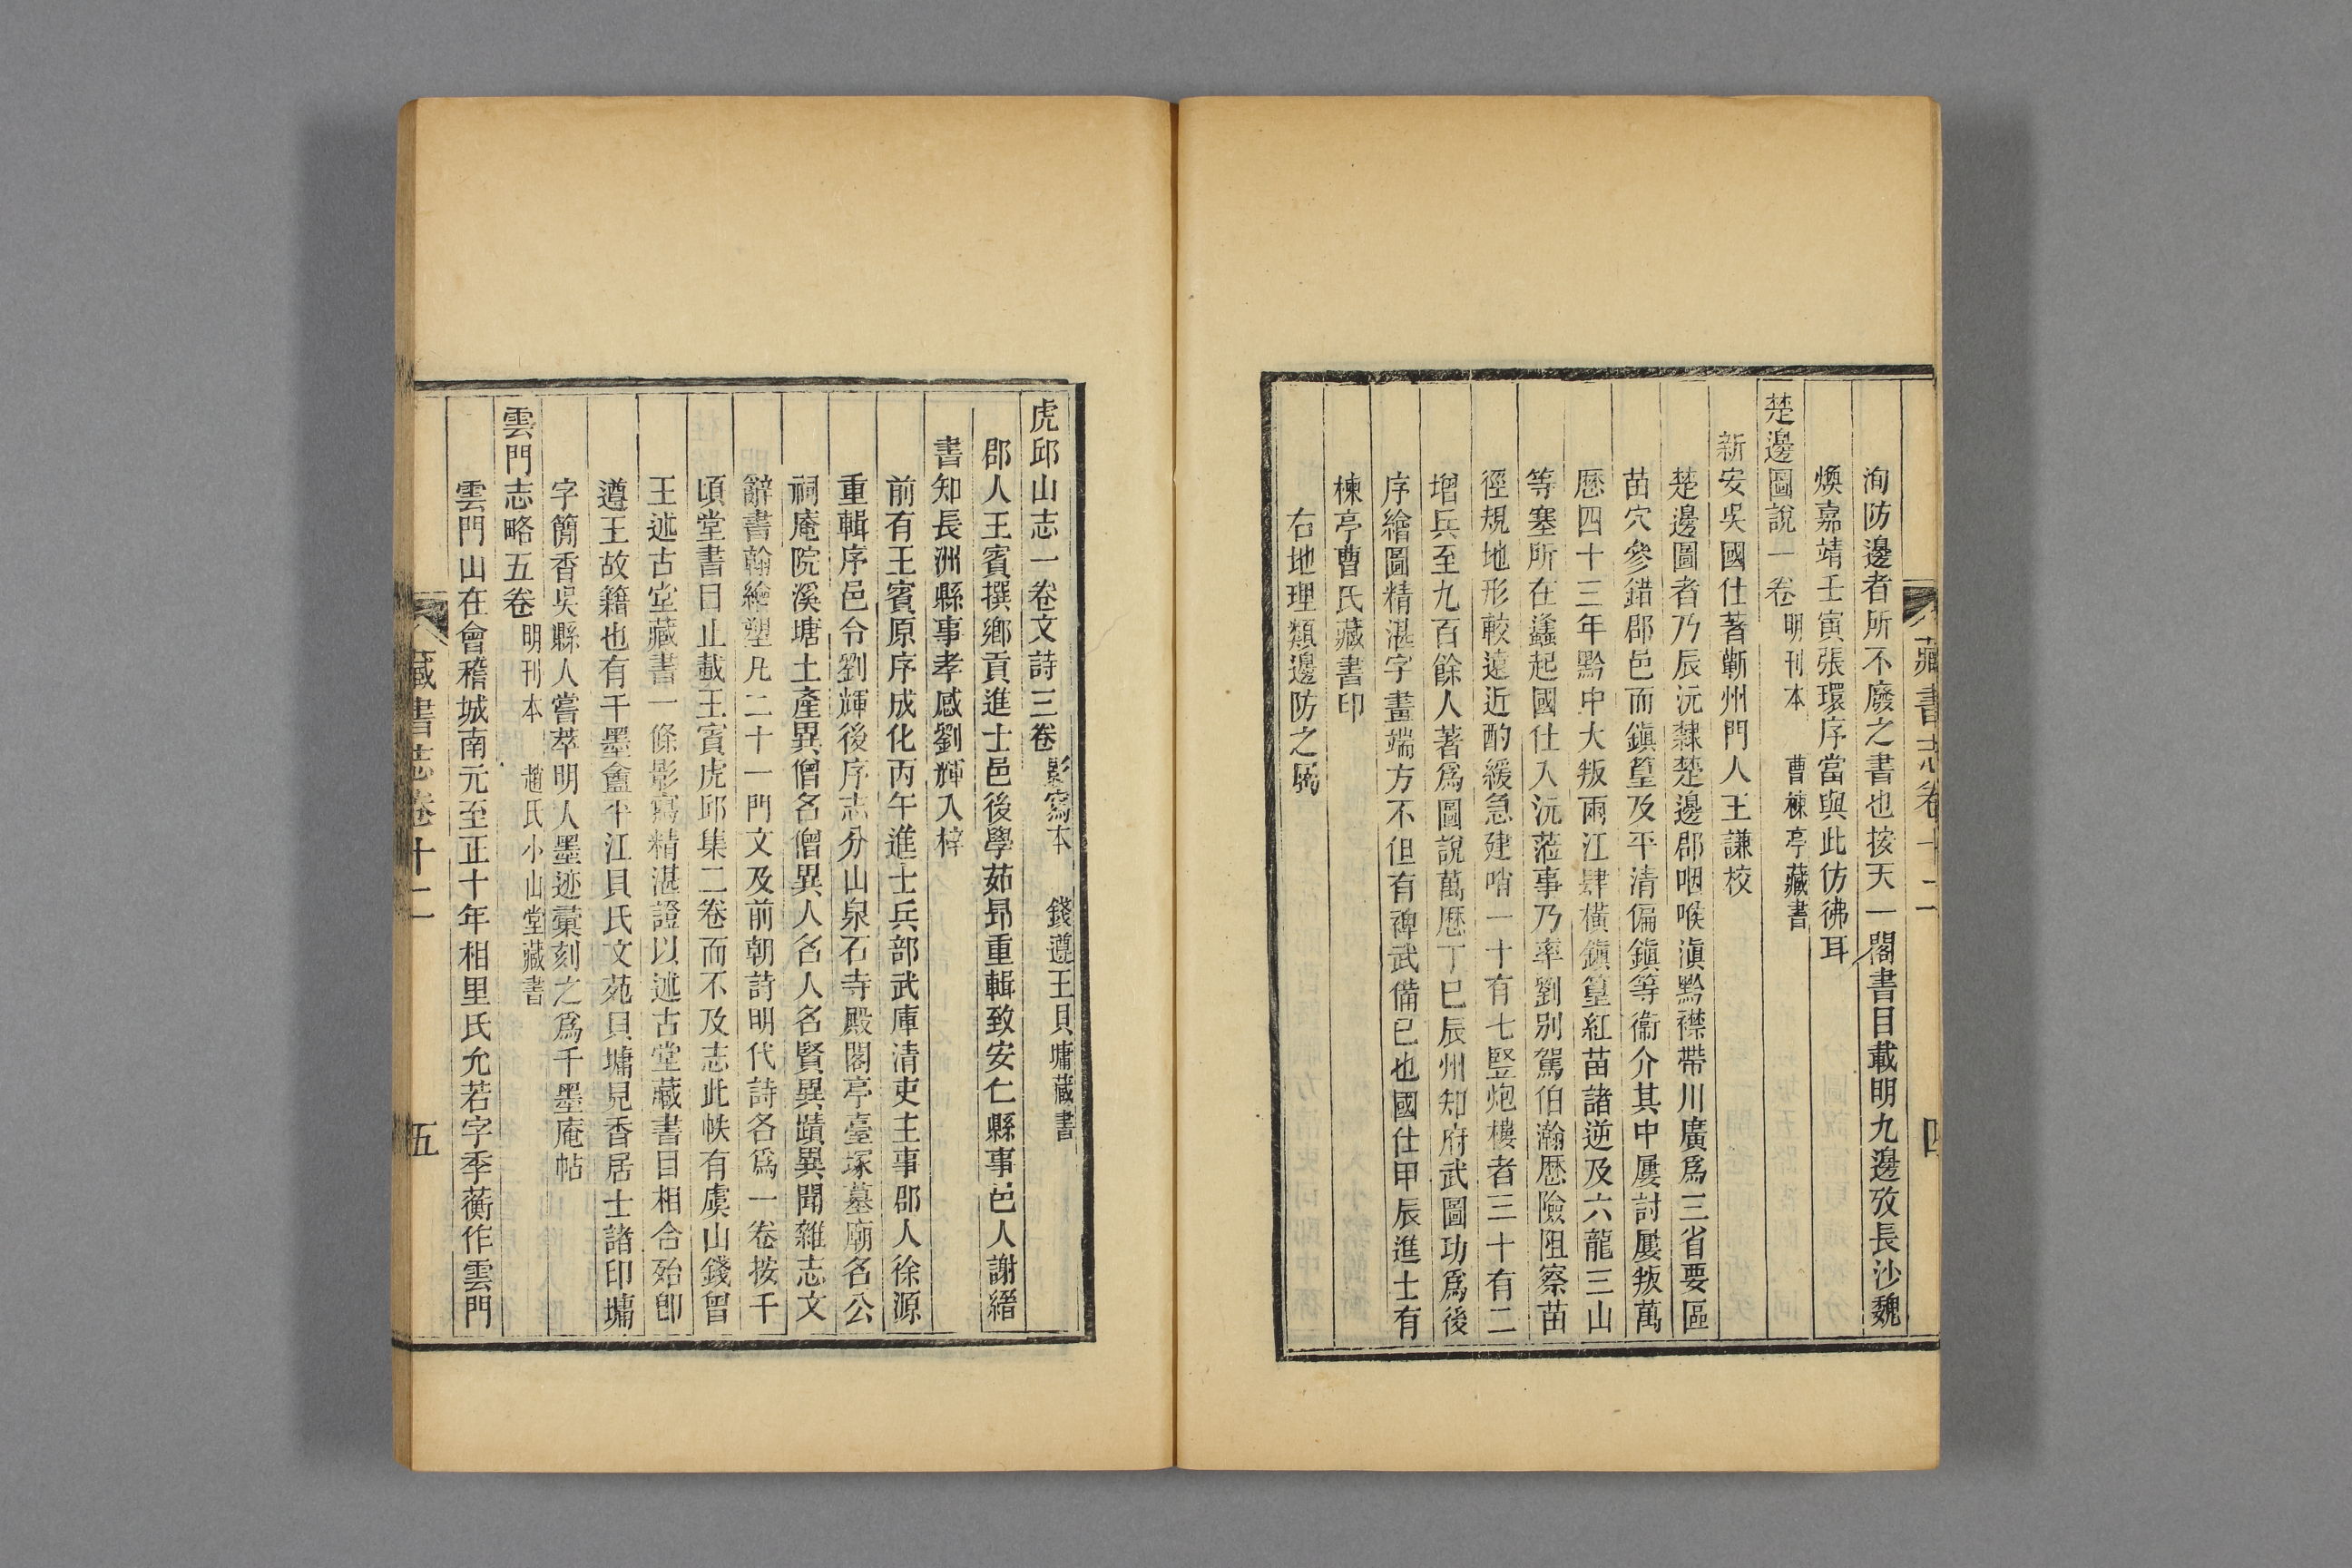 洵防邊者所不廢之書也按天一閣書目載明九邊攷長沙魏
煥嘉靖壬寅張環序當與此仿彿耳
楚邊圖說一卷 明刊本 曹楝亭藏書
新安吳國仕著蘄州門人王謙校
楚邊圖者乃辰沅隸楚邊郡咽喉滇黔襟帶川廣爲三省要區
苗穴參錯郡邑而鎭篁及平清偏鎭等衞介其中屢討屢叛萬
厯四十三年黔中大叛兩江肆橫鎭篁紅苗諸逆及六龍三山
等塞所在蠭起國仕入沅蒞事乃率劉別駕伯瀚厯險阻察苗
徑規地形較遠近酌緩急建哨一十有七竪炮樓者三十有二
增兵至九百餘人著爲圖說萬厯丁巳辰州知府武圖功爲後
序繪圖精湛字畫端方不但有裨武備已也國仕甲辰進士有
楝亭曹氏藏書印
右地理類邊防之屬
藏書志卷十二
虎邱山志一卷文詩三卷 影寫本 錢遵王貝墉藏書
郡人王賓撰鄉貢進士邑後學茹昂重輯致安仁縣事邑人謝縉
書知長洲縣事孝感劉輝入梓
前有王賓原序成化丙午進士兵部武庫清吏主事郡人徐源
重輯序邑令劉輝後序志分山泉石寺殿閣亭臺塚墓廟名公
祠庵院溪塘土產異僧名僧異人名人名賢異蹟異聞雜志文
辭書翰繪塑凡二十一門文及前朝詩明代詩各爲一卷按千
頃堂書目止載王賓虎邱集二卷而不及志此帙有虞山錢曾
王述古堂藏書一條影寫精湛證以述古堂藏書目相合殆卽
遵王故籍也有千墨盦平江貝氏文苑貝墉見香居士諸印墉
字簡香吳縣人嘗萃明人墨迹彙刻之爲千墨庵帖
雲門志略五卷 明刊本 趙氏小山堂藏書
雲門山在會稽城南元至正十年相里氏允若字季蘅作雲門
藏書志卷十二 五